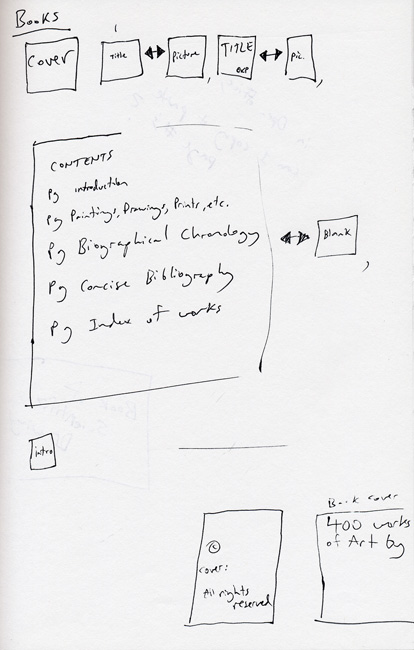 Books
Cover
Title
Picture,
TITLE
Pic.,
CONTENTS
Pg introduction
Pg Paintings, Drawings, Prints, etc.
Pg Biographical Chronology
Blank,
Pg Concise Bibliography
Pg Index of works
intro
Book cover
400 works
of Art by
©
cover:
All rights
reserved